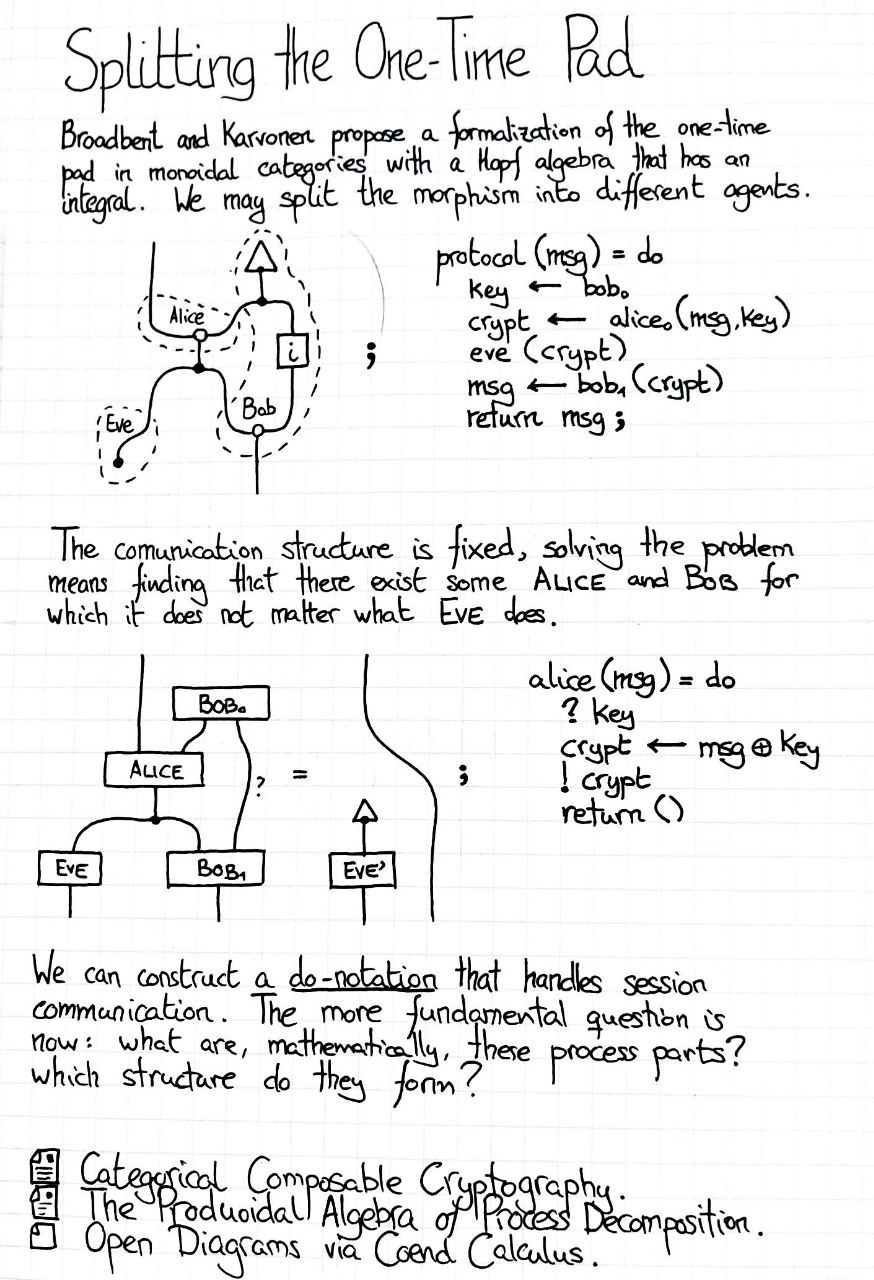 Splitting the One-Time Pad
Broadbent and Karvonen propose a formalization of the one-time
pad in monoidal categories with a Hopf algebra that has an
integral. We may split the morphism into different agents.
Alice
i
Bob
Eve
;
protocol (msg) = do
key ← bob₀
crypt ← alice₀ (msg, key)
eve (crypt)
msg ← bob₁ (crypt)
return msg ;
The comunication structure is fixed, solving the problem
means finding that there exist some ALICE and BOB for
which it does not matter what EVE does.
BOB₀
ALICE
?
=
EVE
BOB₁
EVE'
;
alice (msg) = do
? key
crypt ← msg ⊕ key
! crypt
return ()
We can construct a do-notation that handles session
communication. The more fundamental question is
now: what are, mathematically, these process parts?
which structure do they form?
Categorical Composable Cryptography.
The Produoidal Algebra of Process Decomposition.
Open Diagrams via Coend Calculus.